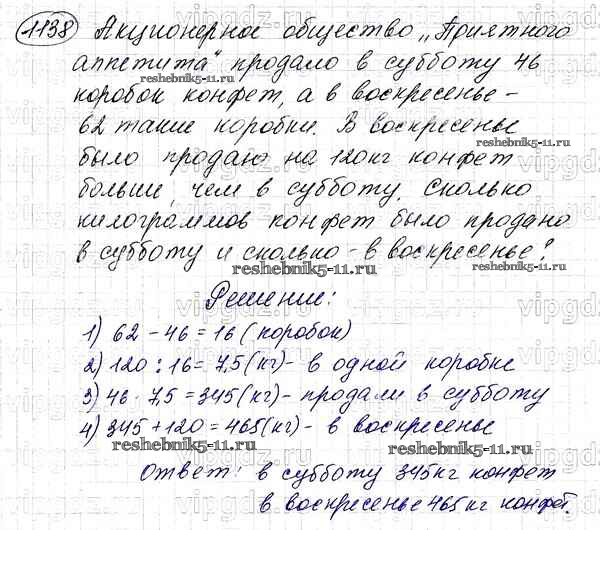 1138 Акционерное общество „Приятного
аппетита“ продало в субботу 46
reshebnik5-11.ru
коробок конфет, а в воскресенье -
62 такие коробки. В воскресенье
reshebnik5-11.ru
было продано на 120кг конфет
больше, чем в субботу. Сколько
килограммов конфет было продано
в субботу и сколько - в воскресенье?
reshebnik5-11.ru
Решение:
1) 62 - 46 = 16 (коробок)
2) 120 : 16 = 7,5 (кг) - в одной коробке
3) 46 · 7,5 = 345 (кг) - продали в субботу
4) 345 + 120 = 465 (кг) - в воскресенье
reshebnik5-11.ru
reshebnik5-11.ru
Ответ: в субботу 345кг конфет
в воскресенье 465кг конфет.